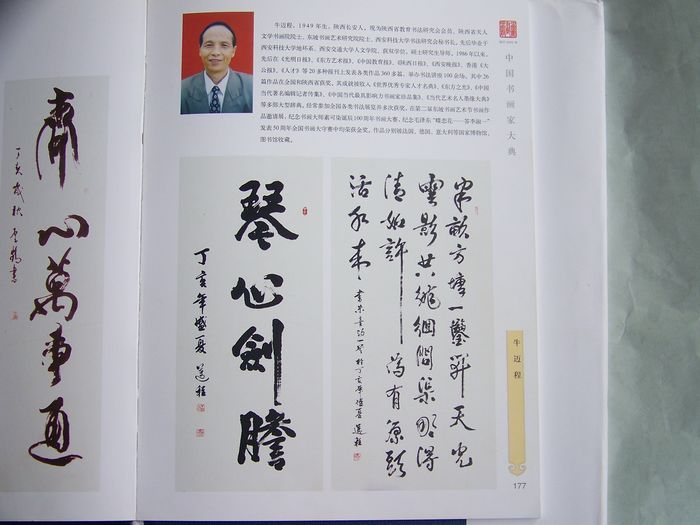 牛迈程，1949年生，陕西长安人，现为陕西省教育书法研究会会员，陕西省天人
文学书画院院士，东坡书画艺术研究院院士，西安科技大学书法研究会秘书长，先后毕业于
西安科技大学地环系、西安交通大学人文学院，获双学位，硕士研究生导师，1986年以来，
先后在《光明日报》、《东方艺术报》、《中国教育报》、《陕西日报》、《西安晚报》、香港《大
公报》、《人才》等20多种报刊上发表各类作品360多篇，举办书法讲座100余场，其中26
篇作品在全国和陕西省获奖，其成就被收入《世界优秀专家人才名典》、《东方之光》、《中国
当代著名编辑记者传集》、《中国当代最具影响力书画家珍品集》、《当代艺术名人墨缘大典》
等多部大型辞典，经常参加全国各类书法展览并多次获奖，在第二届东坡书画艺术节书画作
品邀请展，纪念书画大师素可染诞辰100周年书画大赛，纪念毛泽东“蝶恋花——答李淑一”
发表50周年全国书画大守赛中均荣获金奖，作品分别被法国、德国、意大利等国家博物馆、
图书馆收藏。
中国书画家大典
半畝方塘一鑒開天光
雲影共徘徊問渠那得
清如許為有源頭
活水來
書朱熹詩一首於丁亥年盛夏邁程
琴心劍膽
丁亥年盛夏邁程
齊心萬事通
丁亥歲秋
牛迈程
177